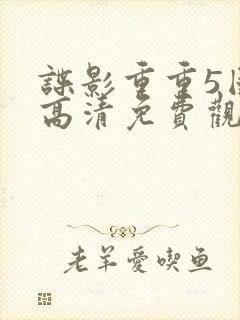 諜影重重5
高清免費觀
老羊愛喫鱼